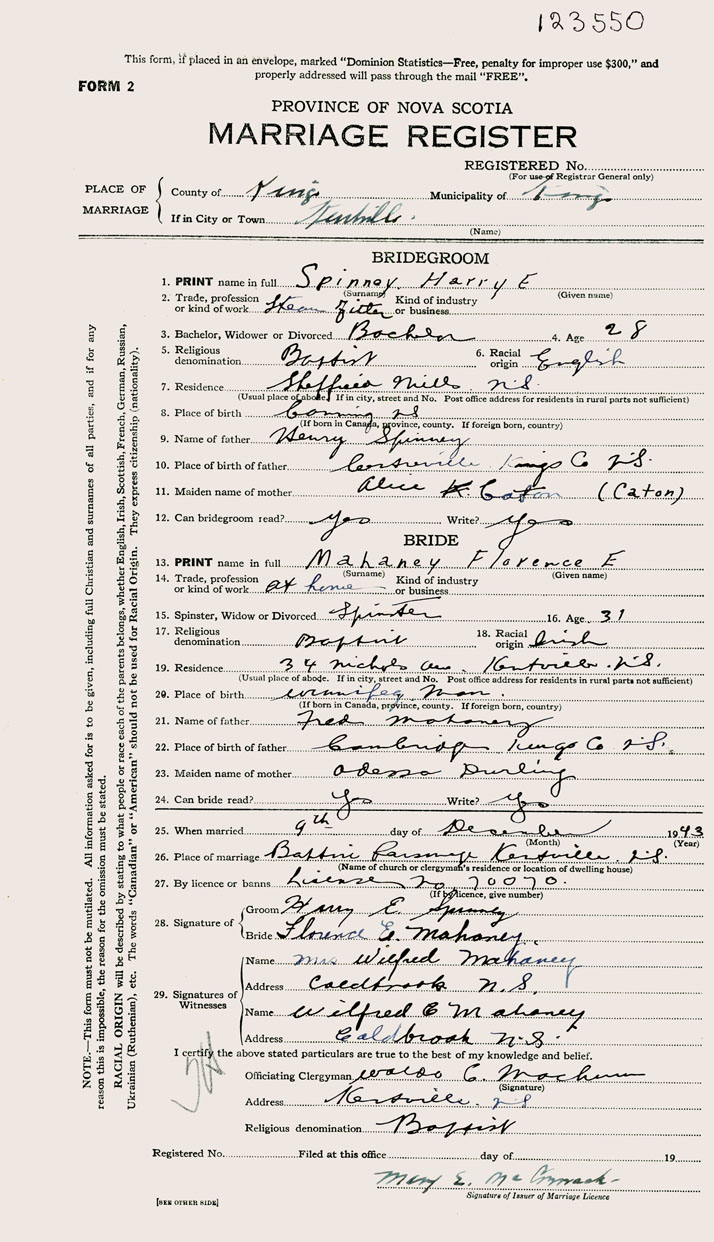 123550
This form, if placed in an envelope, marked "Dominion Statistics—Free, penalty for improper use $300," and
properly addressed will pass through the mail "FREE".
FORM 2
PROVINCE OF NOVA SCOTIA
MARRIAGE REGISTER
REGISTERED No.
(For use of Registrar General only)
PLACE OF MARRIAGE
County of Kings Municipality of Kings
If in City or Town Kentville.
(Name)
BRIDEGROOM
1. PRINT name in full Spinney Harry E
(Surname) (Given name)
2. Trade, profession or kind of work Steam Fitter Kind of industry or business
3. Bachelor, Widower or Divorced Bachelor 4. Age 28
5. Religious denomination Baptist 6. Racial origin English
7. Residence Sheffield Mills N.S.
(Usual place of abode. If in city, street and No. Post office address for residents in rural parts not sufficient)
8. Place of birth NS
(If born in Canada, province, county. If foreign born, country)
9. Name of father Henry Spinney
10. Place of birth of father Centreville Kings Co N.S.
11. Maiden name of mother Alice K. Caton (Caton)
12. Can bridegroom read? Yes Write? Yes
BRIDE
13. PRINT name in full Mahaney Florence E
(Surname) (Given name)
14. Trade, profession or kind of work at home Kind of industry or business
15. Spinster, Widow or Divorced Spinster 16. Age 31
17. Religious denomination Baptist 18. Racial origin Irish
19. Residence 34 Nichols Ave. Kentville. N.S.
(Usual place of abode. If in city, street and No. Post office address for residents in rural parts not sufficient)
20. Place of birth Winnipeg Man.
(If born in Canada, province, county. If foreign born, country)
21. Name of father Fred Mahaney
22. Place of birth of father Cambridge Kings Co N.S.
23. Maiden name of mother Odessa Durling
24. Can bride read? Yes Write? Yes
25. When married 9th day of December 1943
(Month) (Year)
26. Place of marriage Baptist Parsonage Kentville N.S.
(Name of church or clergyman's residence or location of dwelling house)
27. By licence or banns License No 70070.
(If by licence, give number)
28. Signature of
Groom Harry E. Spinney
Bride Florence E. Mahaney.
29. Signatures of Witnesses
Name Mrs Wilfred Mahaney
Address Coldbrook N.S.
Name Wilfred E Mahaney
Address Coldbrook N.S.
I certify the above stated particulars are true to the best of my knowledge and belief.
Officiating Clergyman Waldo C. Machum
(Signature)
Address Kentville. N.S
Religious denomination Baptist
Registered No. Filed at this office day of 19
Mary E. McCormack
Signature of Issuer of Marriage Licence
[SEE OTHER SIDE]
NOTE.—This form must not be mutilated. All information asked for is to be given, including full Christian and surnames of all parties, and if for any
reason this is impossible, the reason for the omission must be stated.
RACIAL ORIGIN will be described by stating to what people or race each of the parents belongs, whether English, Irish, Scottish, French, German, Russian,
Ukrainian (Ruthenian), etc. The words "Canadian" or "American" should not be used for Racial Origin. They express citizenship (nationality).